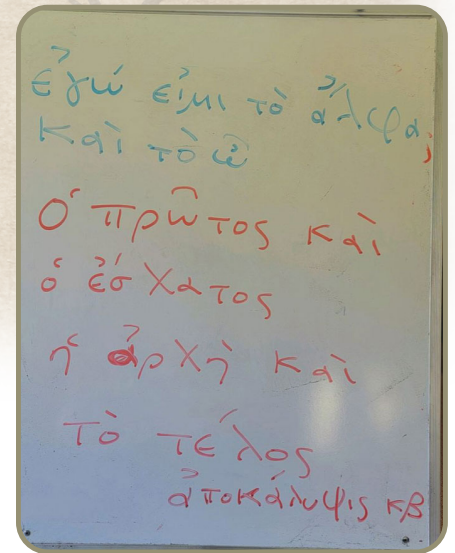 ἐγώ εἰμι τὸ ἄλφα
καὶ τὸ ὦ
ὁ πρῶτος καὶ
ὁ ἔσχατος
ἡ ἀρχὴ καὶ
τὸ τέλος
ἀποκάλυψις κβ